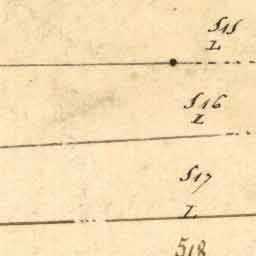 515
L
516
L
517
L
518